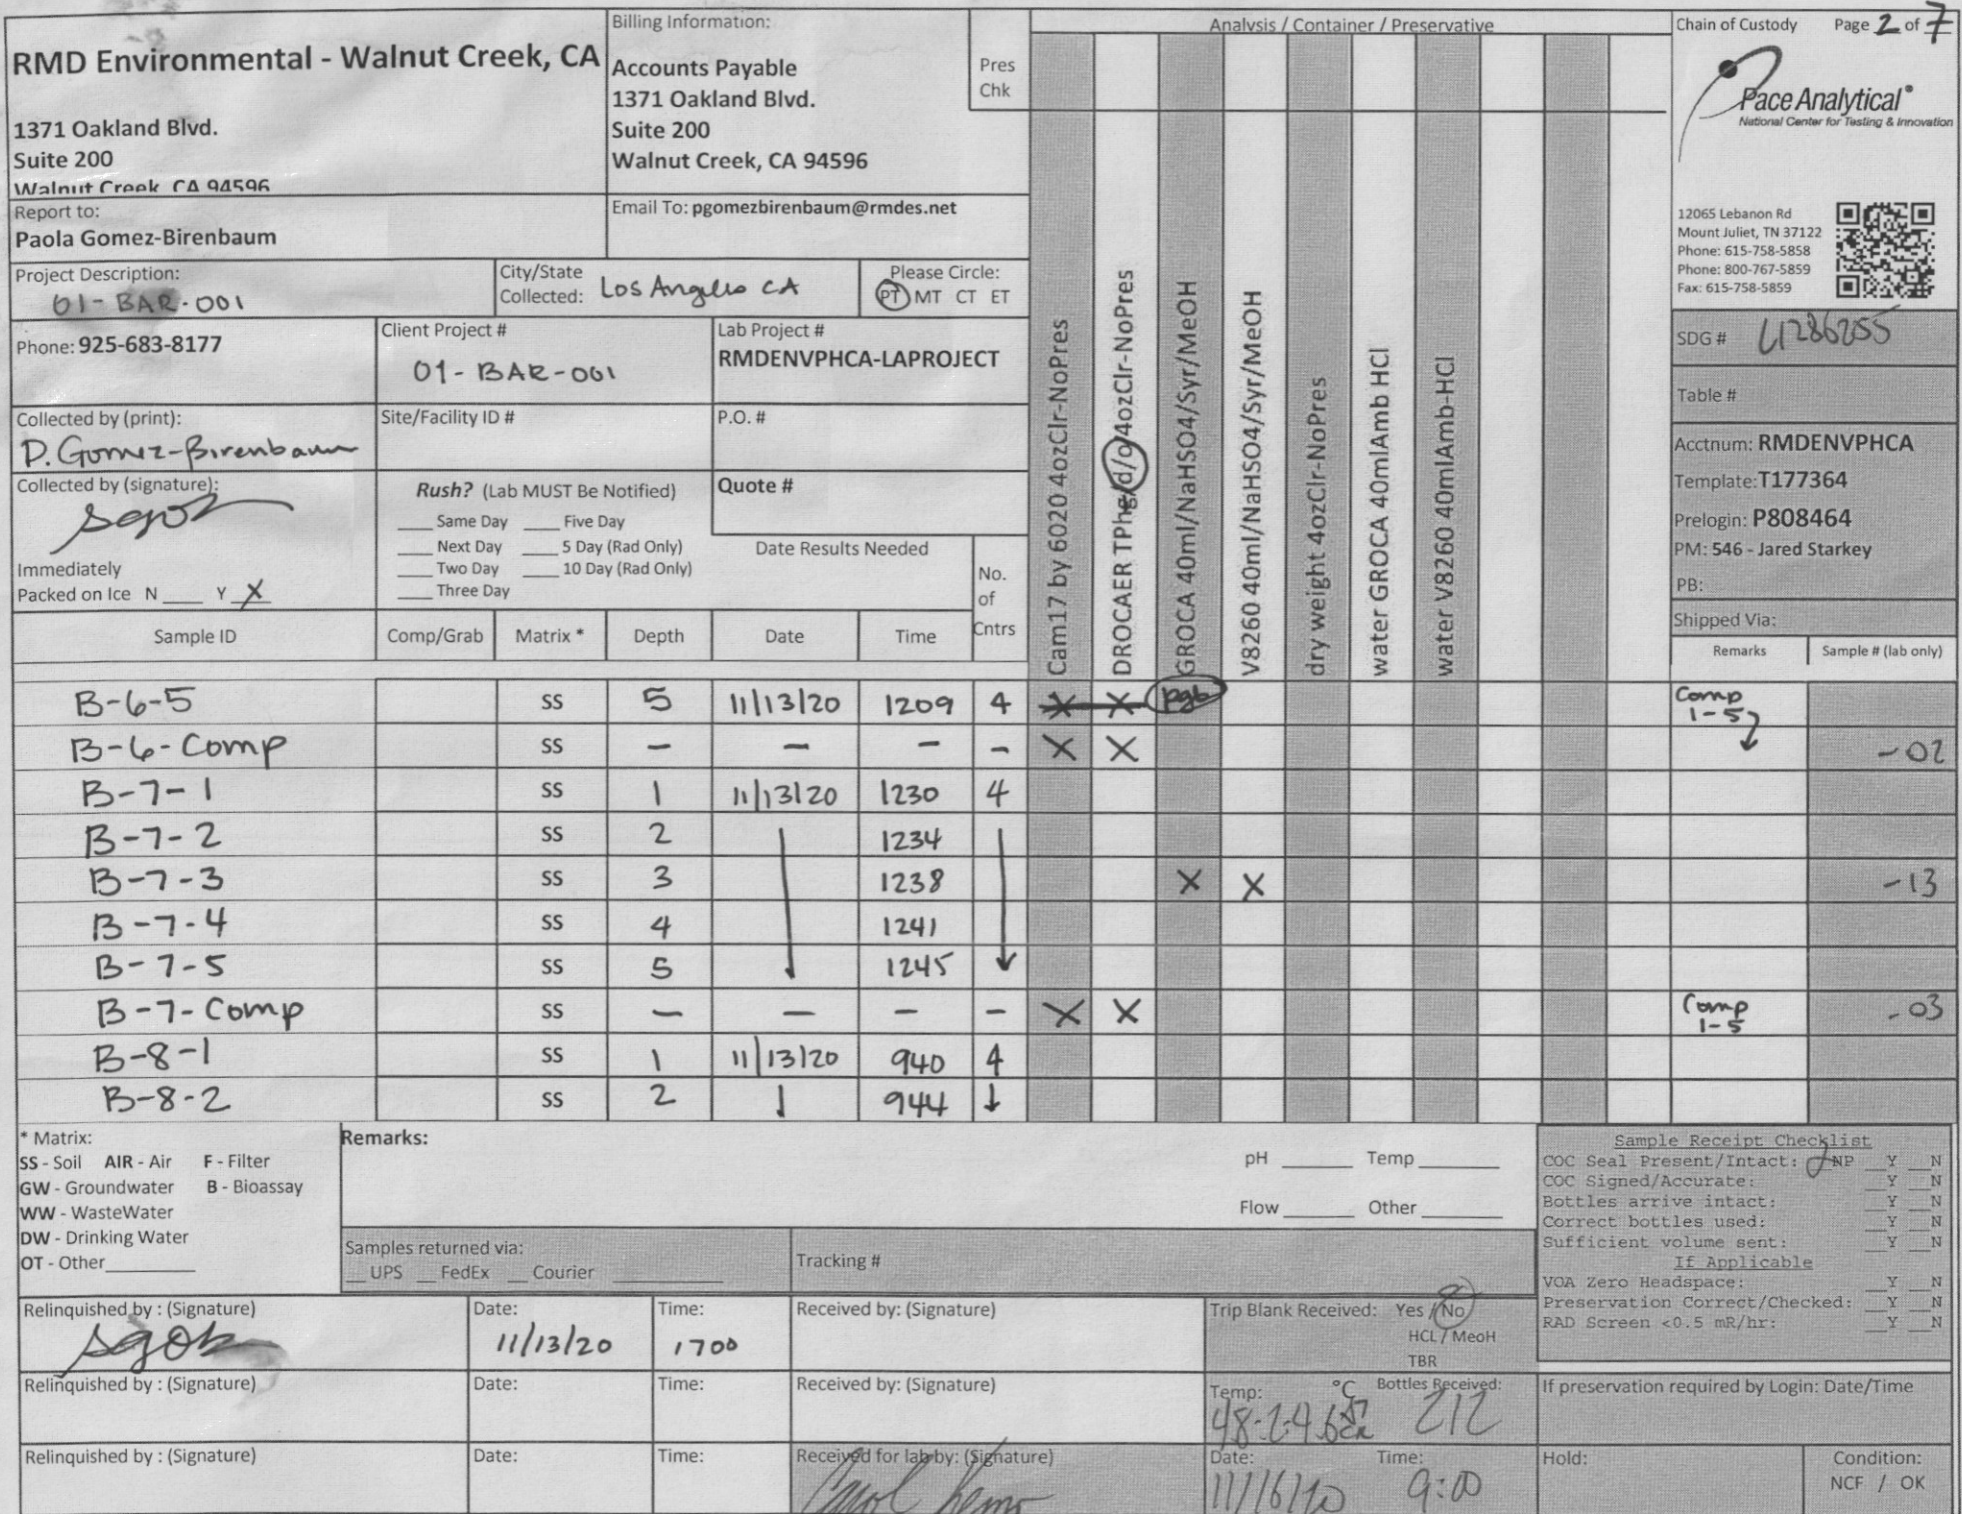 RMD Environmental - Walnut Creek, CA
1371 Oakland Blvd.
Suite 200
Walnut Creek, CA 94596
Billing Information:
Accounts Payable
1371 Oakland Blvd.
Suite 200
Walnut Creek, CA 94596
Pres
Chk
Analysis / Container / Preservative
Chain of Custody Page 2 of 7
Pace Analytical®
National Center for Testing & Innovation
12065 Lebanon Rd
Mount Juliet, TN 37122
Phone: 615-758-5858
Phone: 800-767-5859
Fax: 615-758-5859
Report to:
Paola Gomez-Birenbaum
Email To: pgomezbirenbaum@rmdes.net
Project Description:
01-BAR-001
City/State
Collected: Los Angeles CA
Please Circle:
PT MT CT ET
Phone: 925-683-8177
Client Project #
01-BAR-001
Lab Project #
RMDENVPHCA-LAPROJECT
Collected by (print):
P. Gomez-Birenbaum
Site/Facility ID #
P.O. #
Collected by (signature):
Rush? (Lab MUST Be Notified)
___ Same Day ___ Five Day
___ Next Day ___ 5 Day (Rad Only)
___ Two Day ___ 10 Day (Rad Only)
___ Three Day
Quote #
Date Results Needed
Immediately
Packed on Ice N ___ Y X
No.
of
Cntrs
Cam17 by 6020 4ozClr-NoPres
DROCAER TPhg/d/o/4ozClr-NoPres
GROCA 40ml/NaHSO4/Syr/MeOH
V8260 40ml/NaHSO4/Syr/MeOH
dry weight 4ozClr-NoPres
water GROCA 40mlAmb HCl
water V8260 40mlAmb-HCl
SDG # L1286255
Table #
Acctnum: RMDENVPHCA
Template: T177364
Prelogin: P808464
PM: 546 - Jared Starkey
PB:
Shipped Via:
Sample ID Comp/Grab Matrix * Depth Date Time Remarks Sample # (lab only)
B-6-5 SS 5 11/13/20 1209 4 X X pgb Comp 1-5
B-6-Comp SS - - - - X X -02
B-7-1 SS 1 11/13/20 1230 4
B-7-2 SS 2 1234
B-7-3 SS 3 1238 X X -13
B-7-4 SS 4 1241
B-7-5 SS 5 1245
B-7-Comp SS - - - - X X Comp 1-5 -03
B-8-1 SS 1 11/13/20 940 4
B-8-2 SS 2 944
* Matrix:
SS - Soil AIR - Air F - Filter
GW - Groundwater B - Bioassay
WW - WasteWater
DW - Drinking Water
OT - Other
Remarks:
pH ___ Temp ___
Flow ___ Other ___
Samples returned via:
__ UPS __ FedEx __ Courier
Tracking #
Sample Receipt Checklist
COC Seal Present/Intact: NP __Y __N
COC Signed/Accurate: __Y __N
Bottles arrive intact: __Y __N
Correct bottles used: __Y __N
Sufficient volume sent: __Y __N
If Applicable
VOA Zero Headspace: __Y __N
Preservation Correct/Checked: __Y __N
RAD Screen <0.5 mR/hr: __Y __N
Relinquished by : (Signature) Date: 11/13/20 Time: 1700 Received by: (Signature)
Trip Blank Received: Yes / No
HCL / MeoH
TBR
Relinquished by : (Signature) Date: Time: Received by: (Signature)
Temp: °C Bottles Received: 212
If preservation required by Login: Date/Time
Relinquished by : (Signature) Date: Time: Received for lab by: (Signature)
Date: 11/16/20 Time: 9:00
Hold:
Condition:
NCF / OK